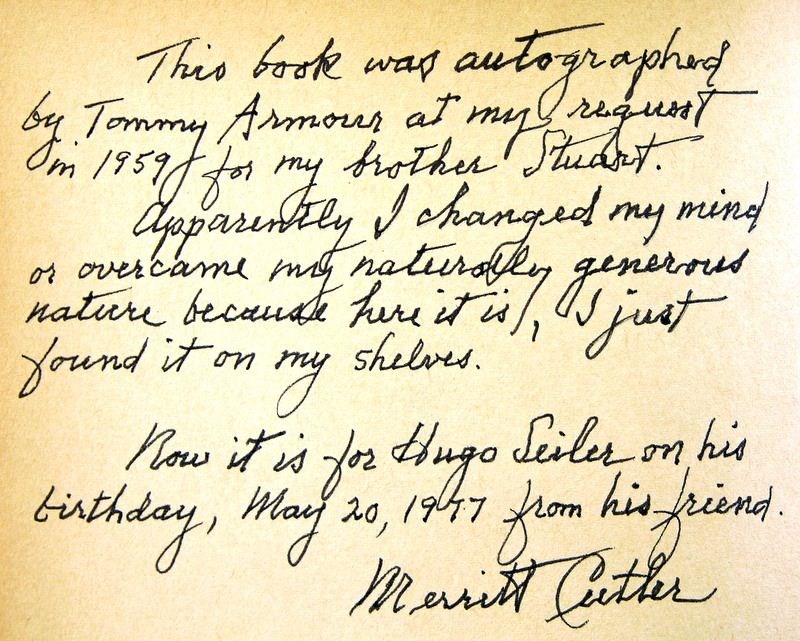 This book was autographed
by Tommy Armour at my request
in 1959 for my brother Stuart.
Apparently I changed my mind
or overcame my naturally generous
nature because here it is, I just
found it on my shelves.
Now it is for Hugo Seiler on his
birthday, May 20, 1977 from his friend.
Merritt Cutler